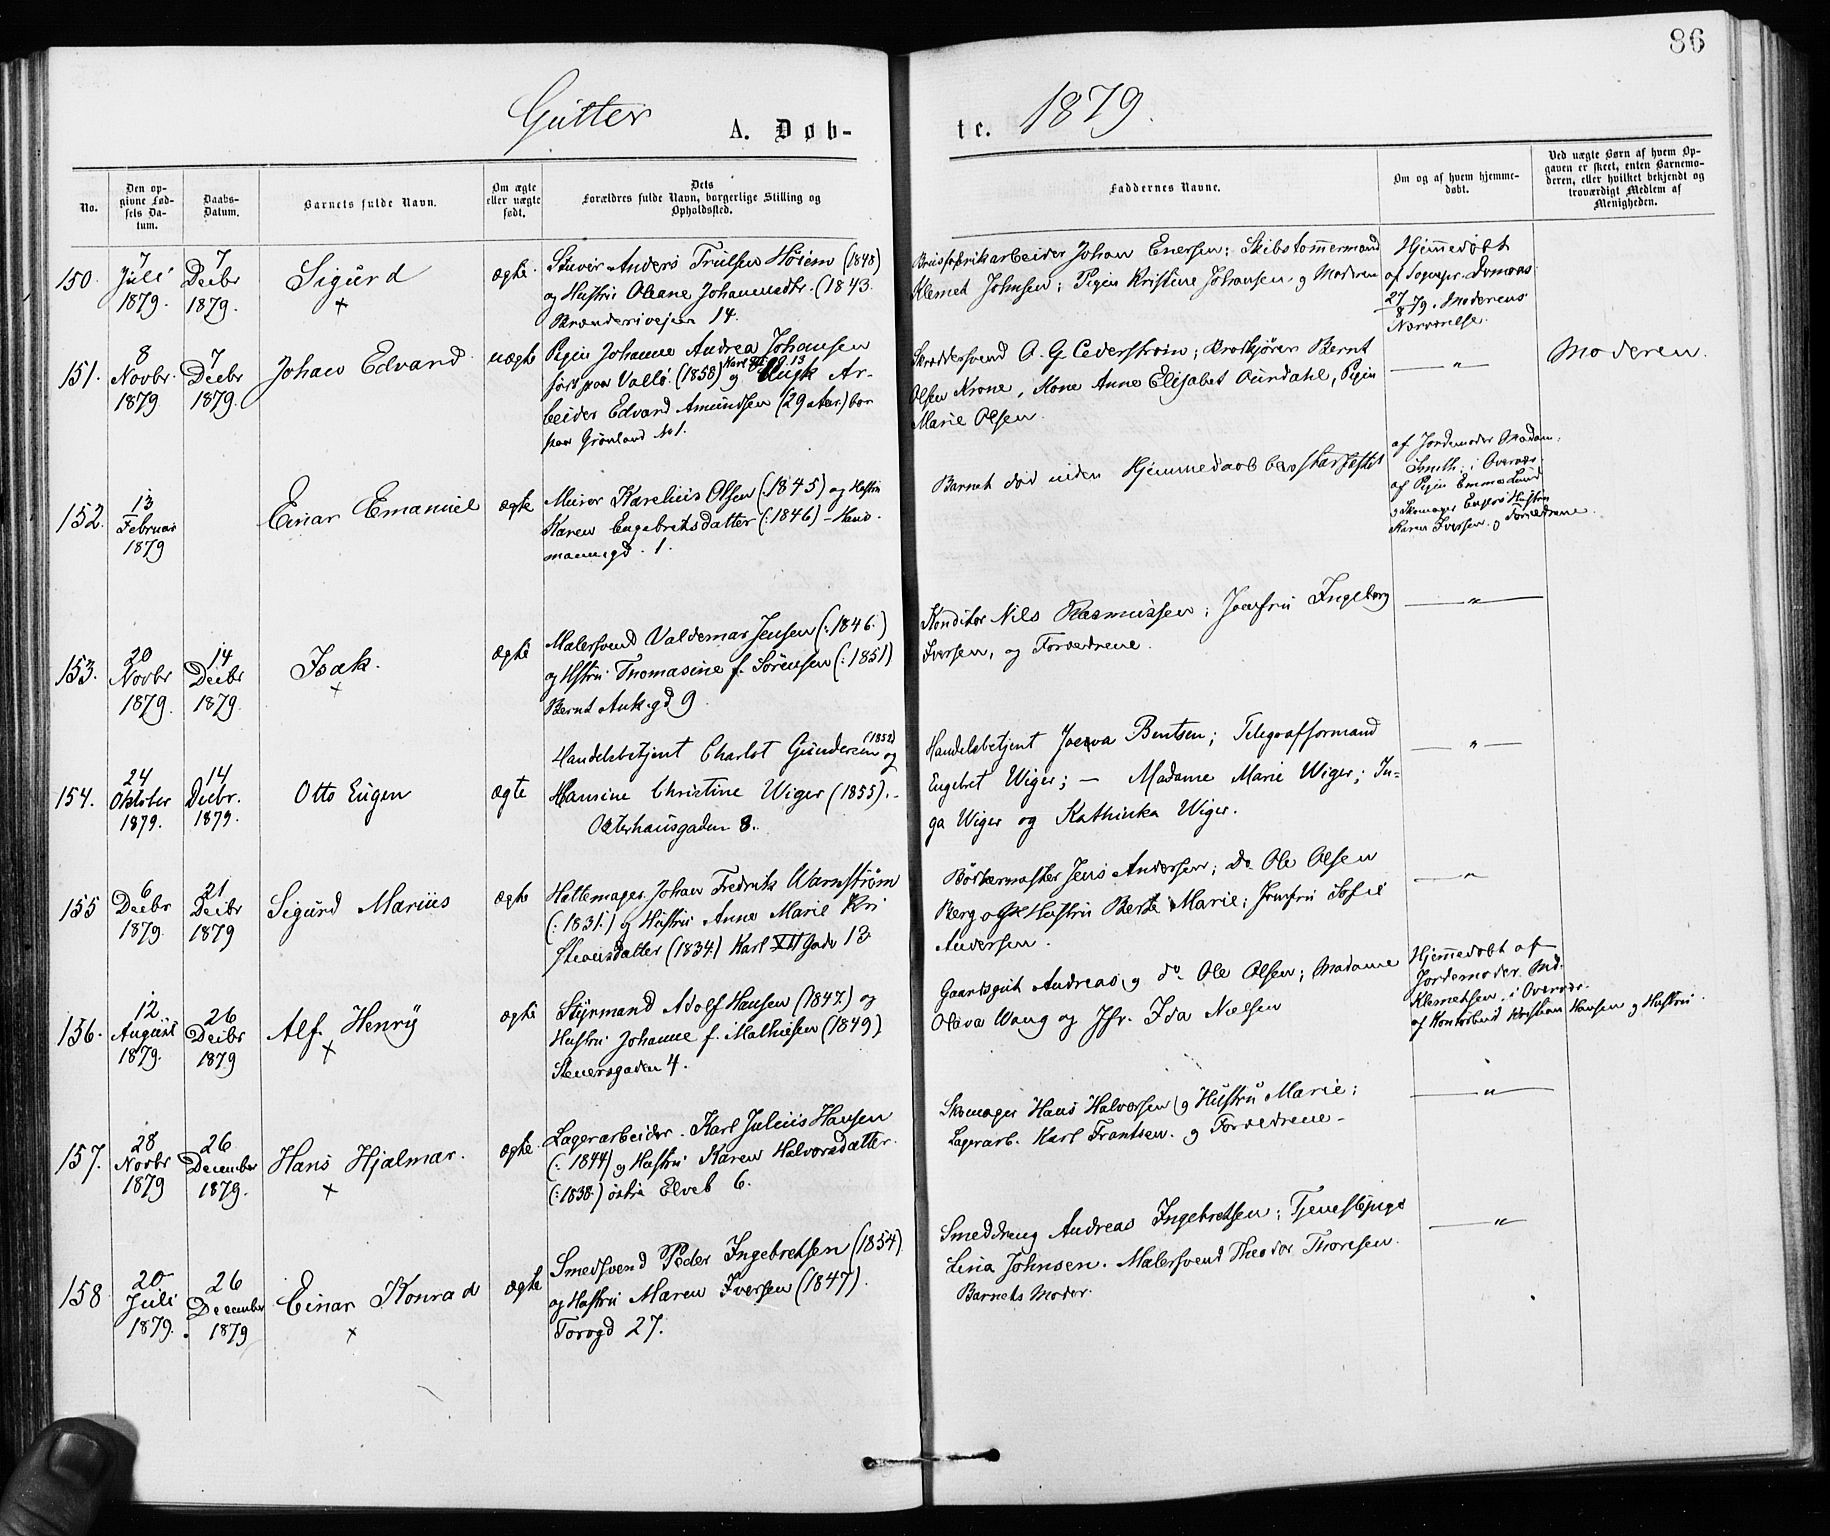 86
Gutter A. Døb-
te. 1879.
No.
Den op-
givne Fød-
sels Da-
tum.
Daabs-
Datum.
Barnets fulde Navn.
Om ægte
eller uægte
født.
Dets
Forældres fulde Navn, borgerlige Stilling og
Opholdssted.
Faddernes Navne.
Om og af hvem hjemme-
døbt.
Ved uægte Børn af hvem Op-
gaven er skeet, enten Barnemo-
deren, eller hvilket bekjendt og
troværdigt Medlem af
Menigheden.
150.
7
Juli
1879.
7
Decbr
1879.
Sigurd
+
ægte.
Stuver Anders Trulsen Høiem (1848)
og Hustru Oleane Johannesdtr. (1843
Brænderiveien 14.
Johan Enersen; Skibstømmermand
Klemet Johnsen; Pigen Kristine Johansen, og Moderen
Hjemmedøbt
af Sogнepr.
27/8 79. Moderens
Nærværelse.
151.
8
Novbr.
1879
7
Decbr
1879.
Johan Edvard
uægte
Pigen Johanne Andrea Johansen
født paa Vallø (1858) og Ar-
beider Edvard Amundsen (29 Aar) bor
paa Grønland No 1.
Skræddersvend A. G. Cederstrøm; Bernt
Olsen Krone, Kone Anne Elisabet Aurdahl, Pigen
Marie Olsen.
— " —
Moderen.
152.
13
Februar
1879
Einar Emanuel
ægte
Murer Karelius Olsen (:1845) og Hustru
Karen Engebretsdatter (:1846) – Haus-
mannsgd. 1.
Barnet død uden Hjemmedaab bevstadfæstet
af Jordemoder Madam
Smith i Overvær
af Pigen Emma Lund
og Skomager Hustru
Karen Iversen. og Forældrene.
153.
20
Novbr
1879.
14
Decbr
1879.
Isak.
+
ægte
Malersvend Valdemar Jensen (:1846.)
og Hstru Thomasine f. Sørensen (:1851)
Bernt Ank.gd 9
Konditor Nils Rasmussen; Jomfru Ingeborg
Iversen, og Forældrene.
— " —
154.
24
Oktober
1879.
14
Decbr.
1879.
Otto Eugen
ægte
Handelsbetjent Charlot Gundersen (1852) og
Hansine Christine Wiger (1855). –
Osterhausgaden 8.
Handelsbetjent Bentsen; Telegrafformand
Engebret Wiger; – Madame Marie Wiger; In-
ga Wiger og Kathinka Wiger.
— " —
155
6
Decbr
1879.
21
Decbr
1879
Sigurd Marius
ægte
Hattemager Johan Fredrik Warnstrøm
(:1831:) og Hustru Anne Marie Kri
stiansdatter (1834) Karl XII Gade 13
Bødkermester Jens Andersen; Do Ole Olsen
Berg og Hustru Berte Marie; Jomfru Sofie
Andersen.
— " —
156.
12
August
1879.
26
Decbr
1879
Alf Henry
+
ægte
Styrmand Adolf Hansen (1847.) og
Hustru Johanne f. Mathiesen (1849)
Stenersgaden 4.
Gaardsgut Andreas og do Ole Olsen; Madame
Olava Wang og Jfr. Ida Nielsen
Hjemmedøbt af
Jordemoder Md.
Klemetsen, i Overvær.
af Kontorbud Kristian Hansen og Hustru.
157.
28
Novbr
1879
26
December
1879.
Hans Hjalmar.
+
ægte.
Lagerarbeider. Karl Julius Hansen
(:1844) og Hustru Karen Halvorsdatter.
(:1838.) østre Elveb 6.
Skomager Hans Halvorsen og Hustru Marie;
Lagerarb. Karl Frantsen. og Forældrene –
— " —
158
20
Juli
1879.
26
December
1879
Einar Konrad
+
ægte
Smedsvend Peder Ingebretsen (1854)
og Hustru Maren Iversen (1847).
Torvgd 27.
Smeddreng Andreas Ingebretsen; Tjenestepige
Lina Johnsen. Malersvend Theodor Thoresen.
Barnets Moder.
— " —